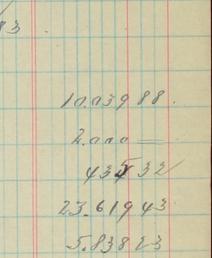 83
10.03988.
2.000 =
43532
23.61943
5.83823